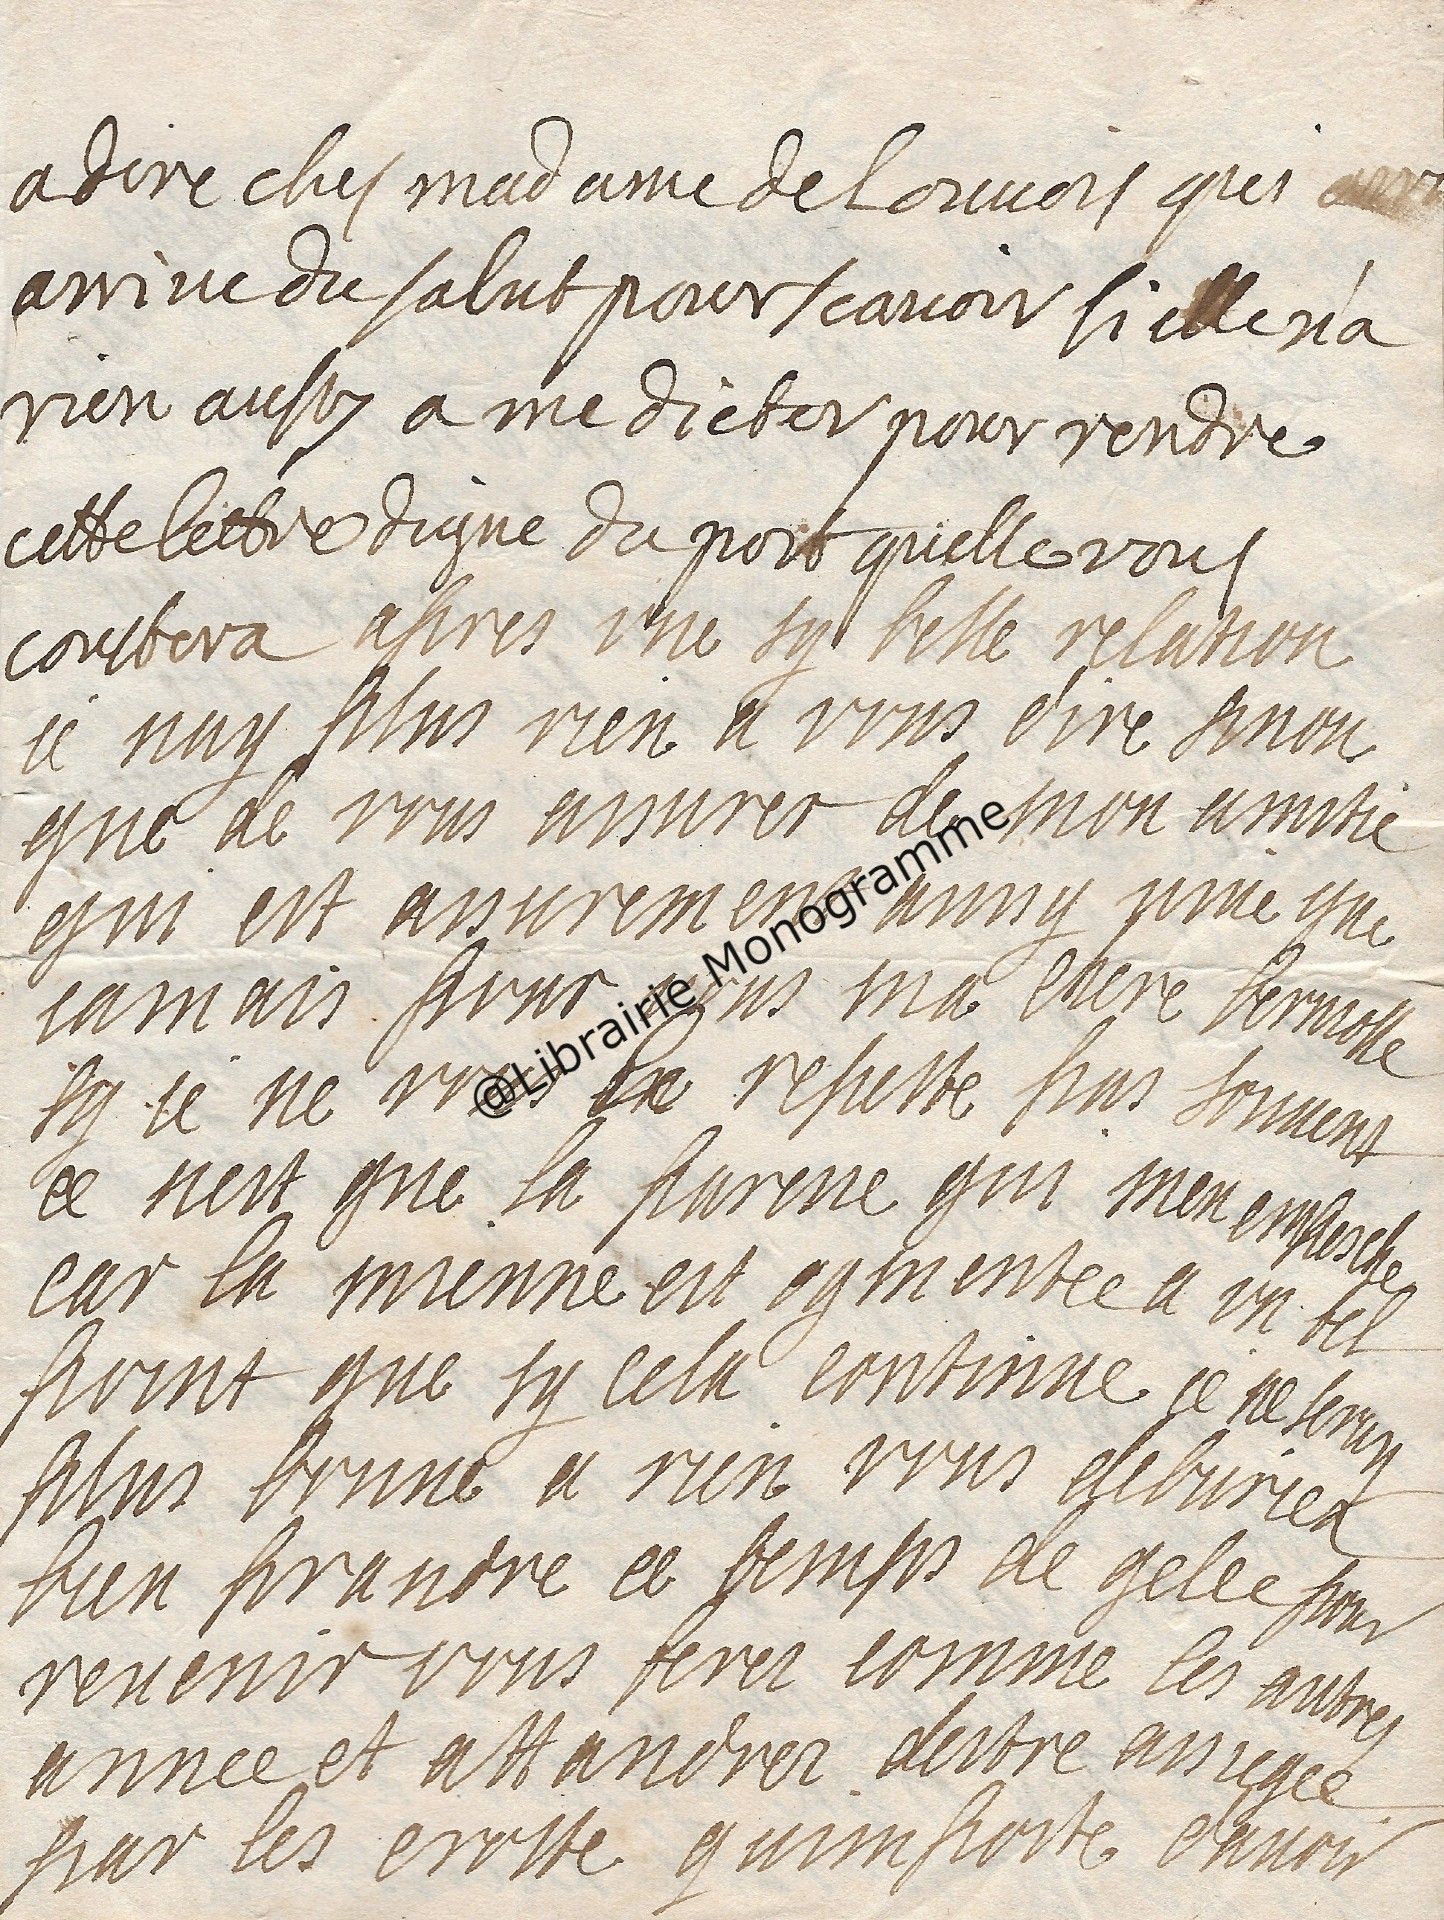 a dire ches madame de Louuois qui
arriue du salut pour scauoir si elle n'a
rien aussy a me dicter pour rendre
cette lettre digne du port quelle vous
coustera apres vne sy belle relation
ie nay plus rien a vous dire sinon
que de vous assurer de mon amitie
qui est assurement aussy que
iamais pour vous ma chere
sy ie ne vous le repette pas souuent
ce nest que la paresse qui men empesche
car la mienne est ogmentee a vn tel
point que sy cela continue ie ne seray
plus bonne a rien vous deburiez
bien prandre ce temps de gelee pour
reuenir vous feres comme les autres
annee et attandrez destre assiegee
par les crotte quimporte
@Librairie Monogramme